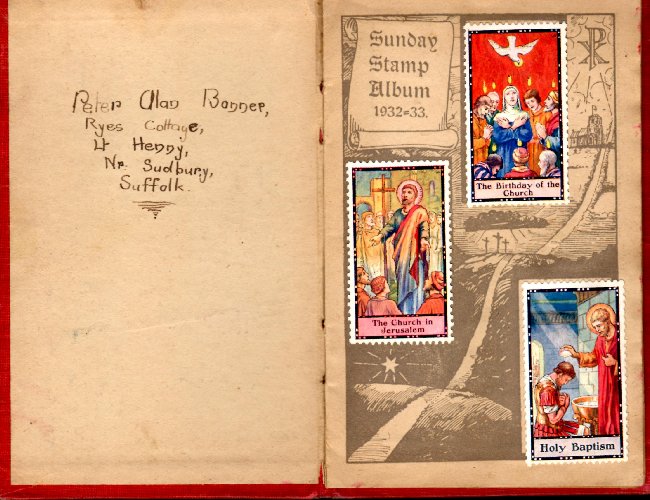 Peter Alan Banner,
Ryes Cottage,
Lt Henny,
Nr. Sudbury,
Suffolk.
Sunday
Stamp
Album
1932=33.
The Birthday of the
Church
The Church in
Jerusalem
Holy Baptism